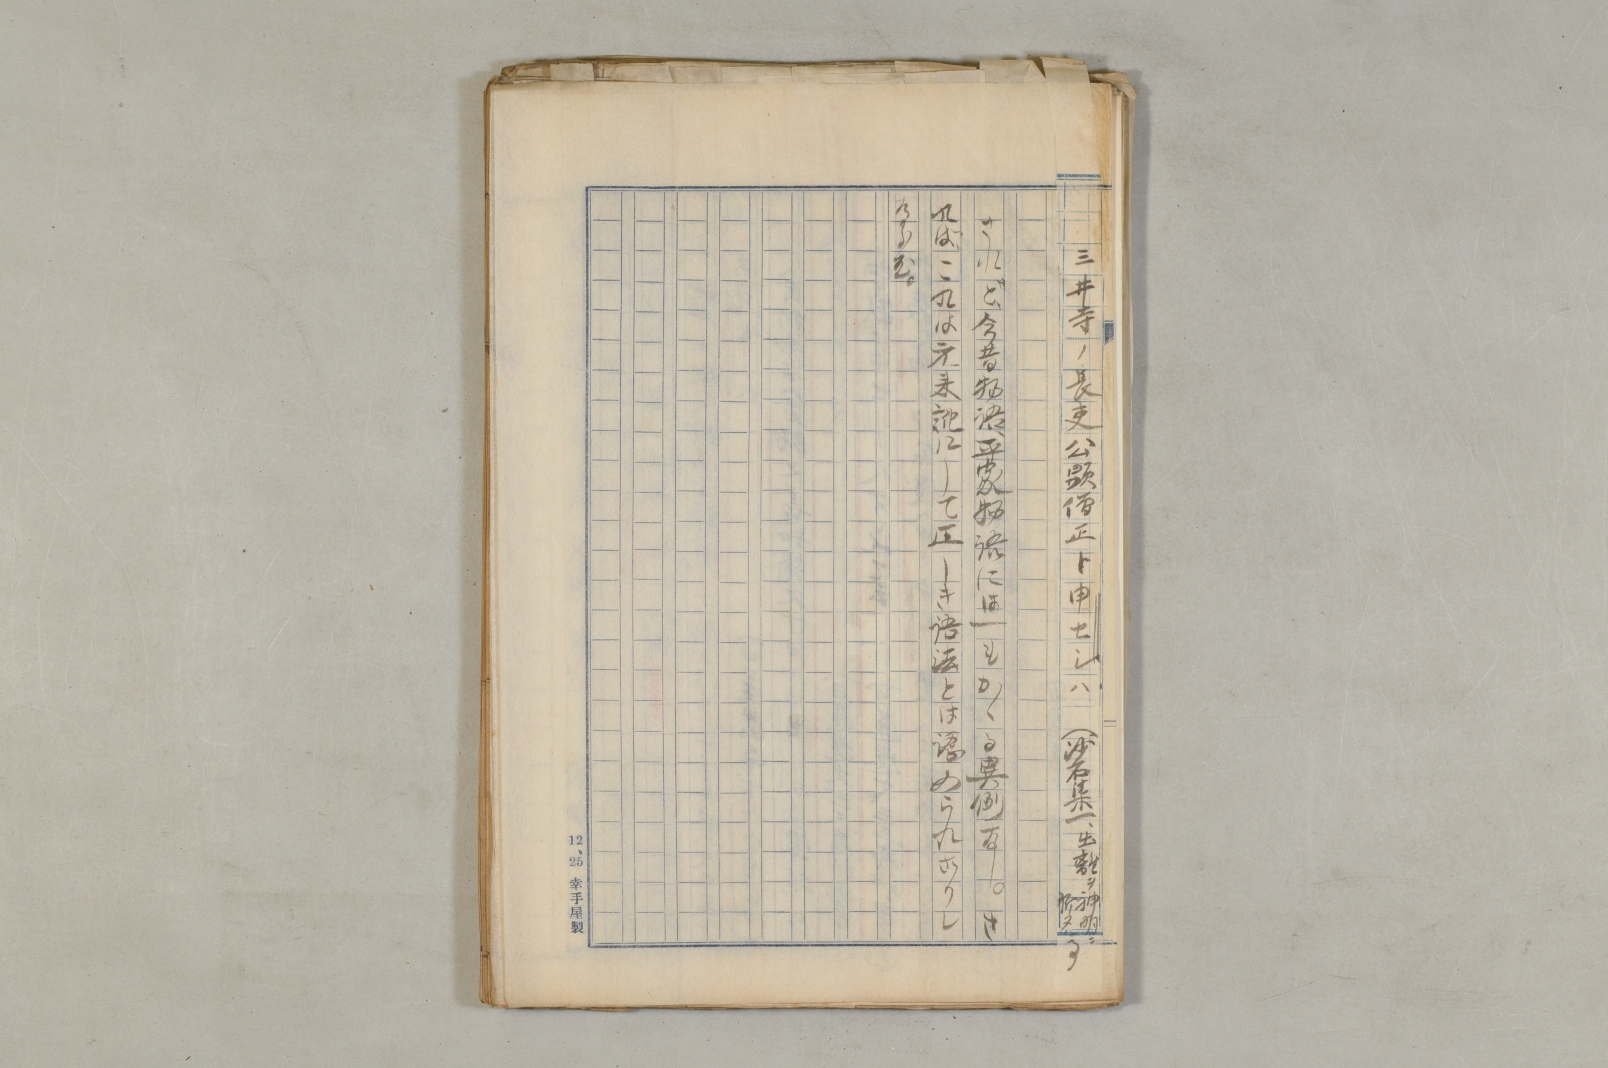 三井寺ノ長吏公顕僧正ト申セシハ (沙石集一、出離ヲ神明ニ祈ル事
されど、今昔物語、平家物語には一もかゝる異例なし。さ
れば、これは元来訛にして正しき語法とは認められざりし
なるべし。
12、25 幸手屋製